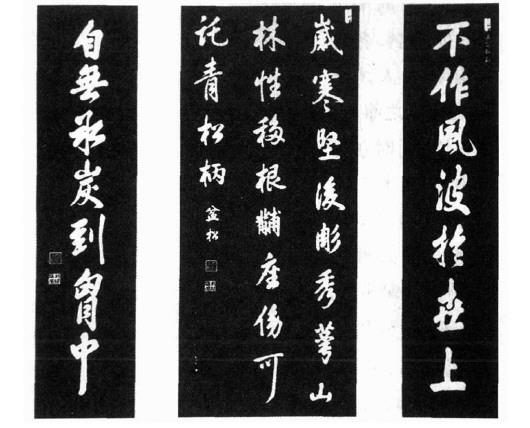 不作風波於世上
歲寒堅後彫秀萼山
林性移根黼座傍可
託青松柄 盆松
自無冰炭到胷中